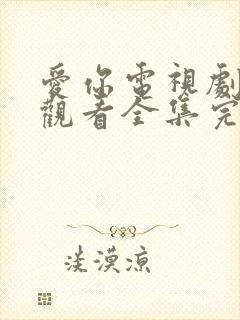 愛你電視劇
觀看全集完
淡漠涼